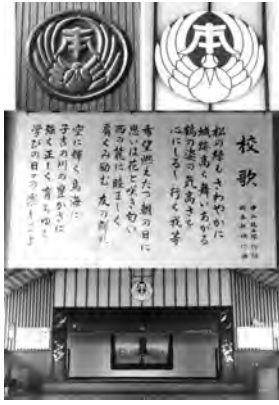 本
本
校歌
松の緑もさわやかに
城跡高く舞いあがる
鶴の姿の気高さを
心にしるし行く我等
希望燃えたつ朝の日に
思いは花と咲き匂い
西の麓に睦まじく
肩くみ励む友の
空に輝く鳥海に
子吉の川の豊かさに
強く正しく育ちゆく
学びの日々の